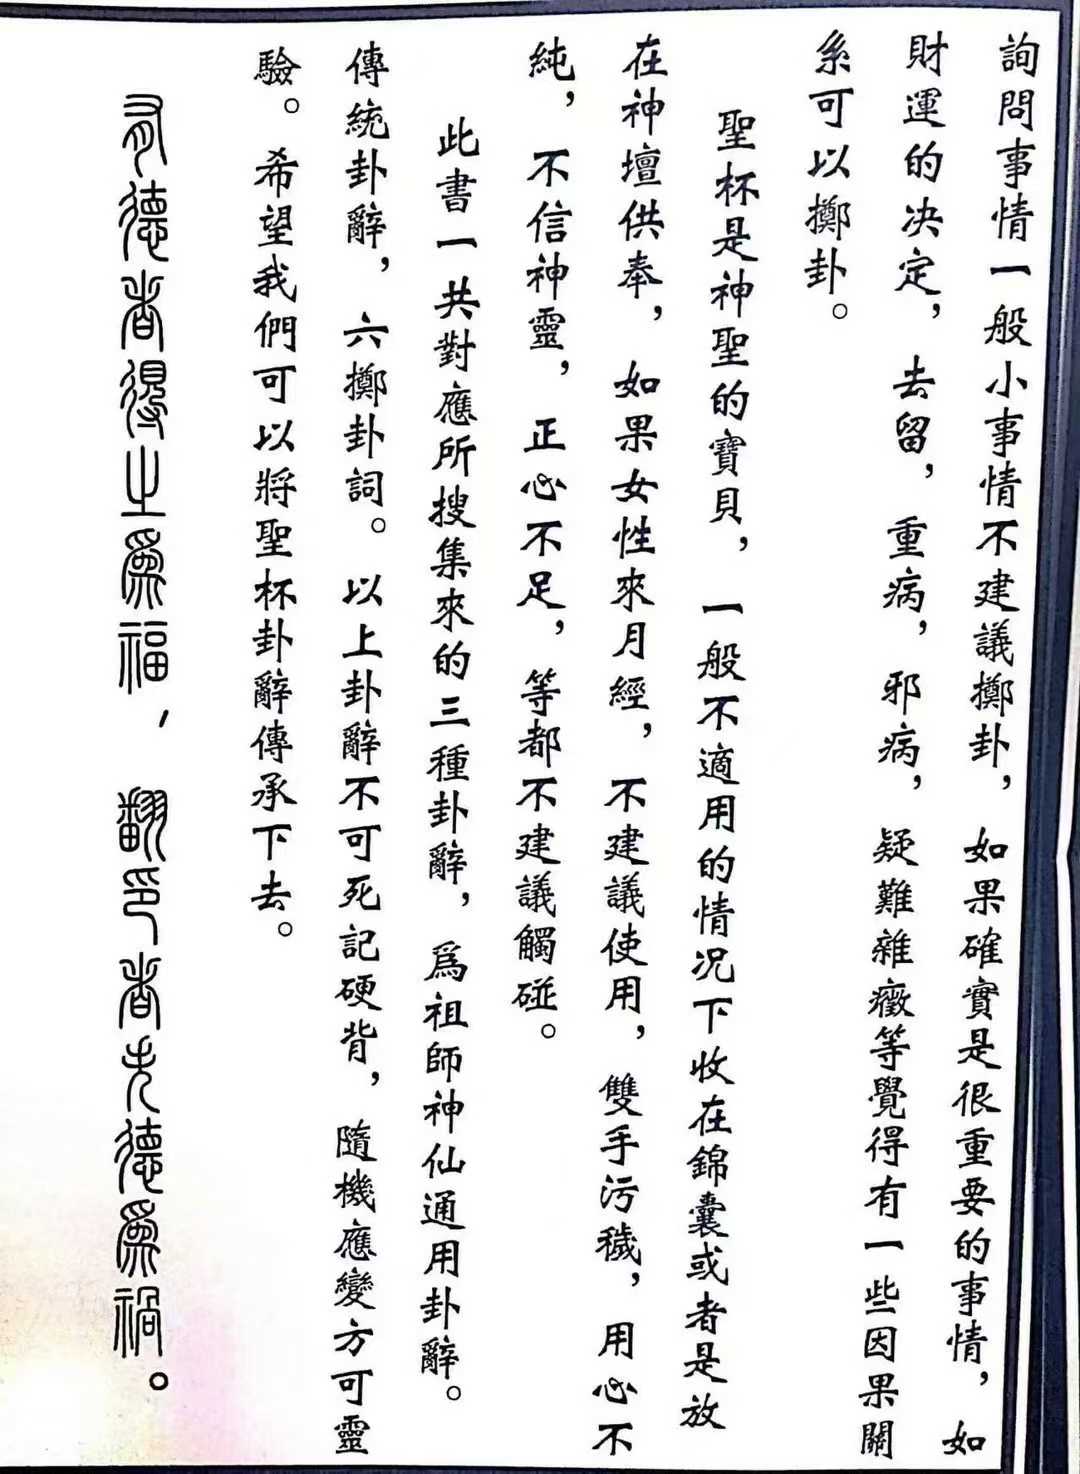 詢問事情一般小事情不建議擲卦，如果確實是很重要的事情，如
財運的決定，去留，重病，邪病，疑難雜癥等覺得有一些因果關
系可以擲卦。
聖杯是神聖的寶貝，一般不適用的情況下收在錦囊或者是放
在神壇供奉，如果女性來月經，不建議使用，雙手污穢，用心不
純，不信神靈，正心不足，等都不建議觸碰。
此書一共對應所搜集來的三種卦辭，爲祖師神仙通用卦辭。
傳統卦辭，六擲卦詞。以上卦辭不可死記硬背，隨機應變方可靈
驗。希望我們可以將聖杯卦辭傳承下去。
有德者得之爲福，翻印者失德爲禍。